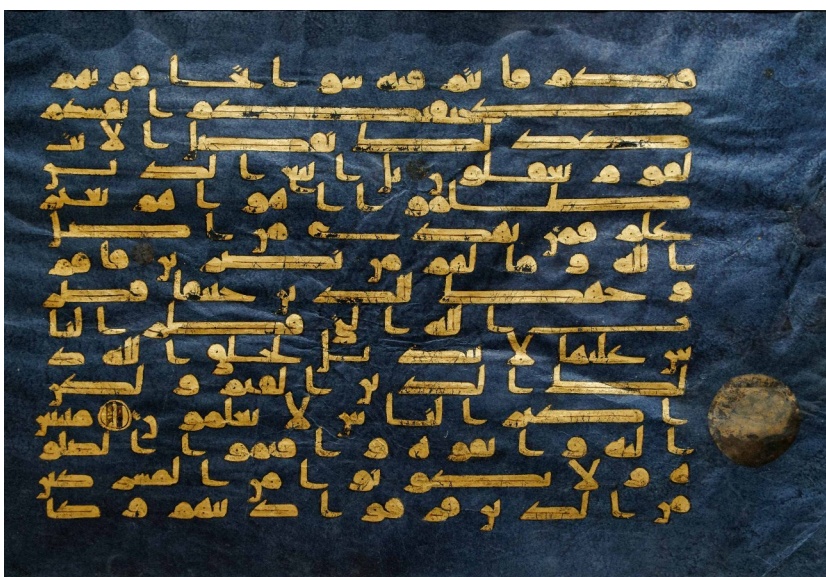 نكم فانتم فيه سوا تخافونهم
كخيفتكم انفسكم
كذلك نفصل الايت
لقوم يعقلون بل اتبع الذين
ظلموا اهواهم بغير
علم فمن يهدي من اضل
الله وما لهم من نصرين فاقم
وجهك للدين حنيفا فطر
ت الله التي فطر النا
س عليها لا تبديل لخلق الله ذ
لك الدين القيم ولكن
اكثر الناس لا يعلمون منيبين
اليه واتقوه واقيموا الصلو
ه ولا تكونوا من المشركين
من الذين فرقوا دينهم وكا